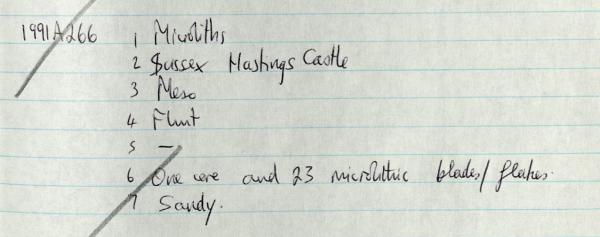 1991A266 1 Microliths
2 Sussex Hastings Castle
3 Meso
4 Flint
5 —
6 One core and 23 microlithic blades/flakes.
7 Sandy.